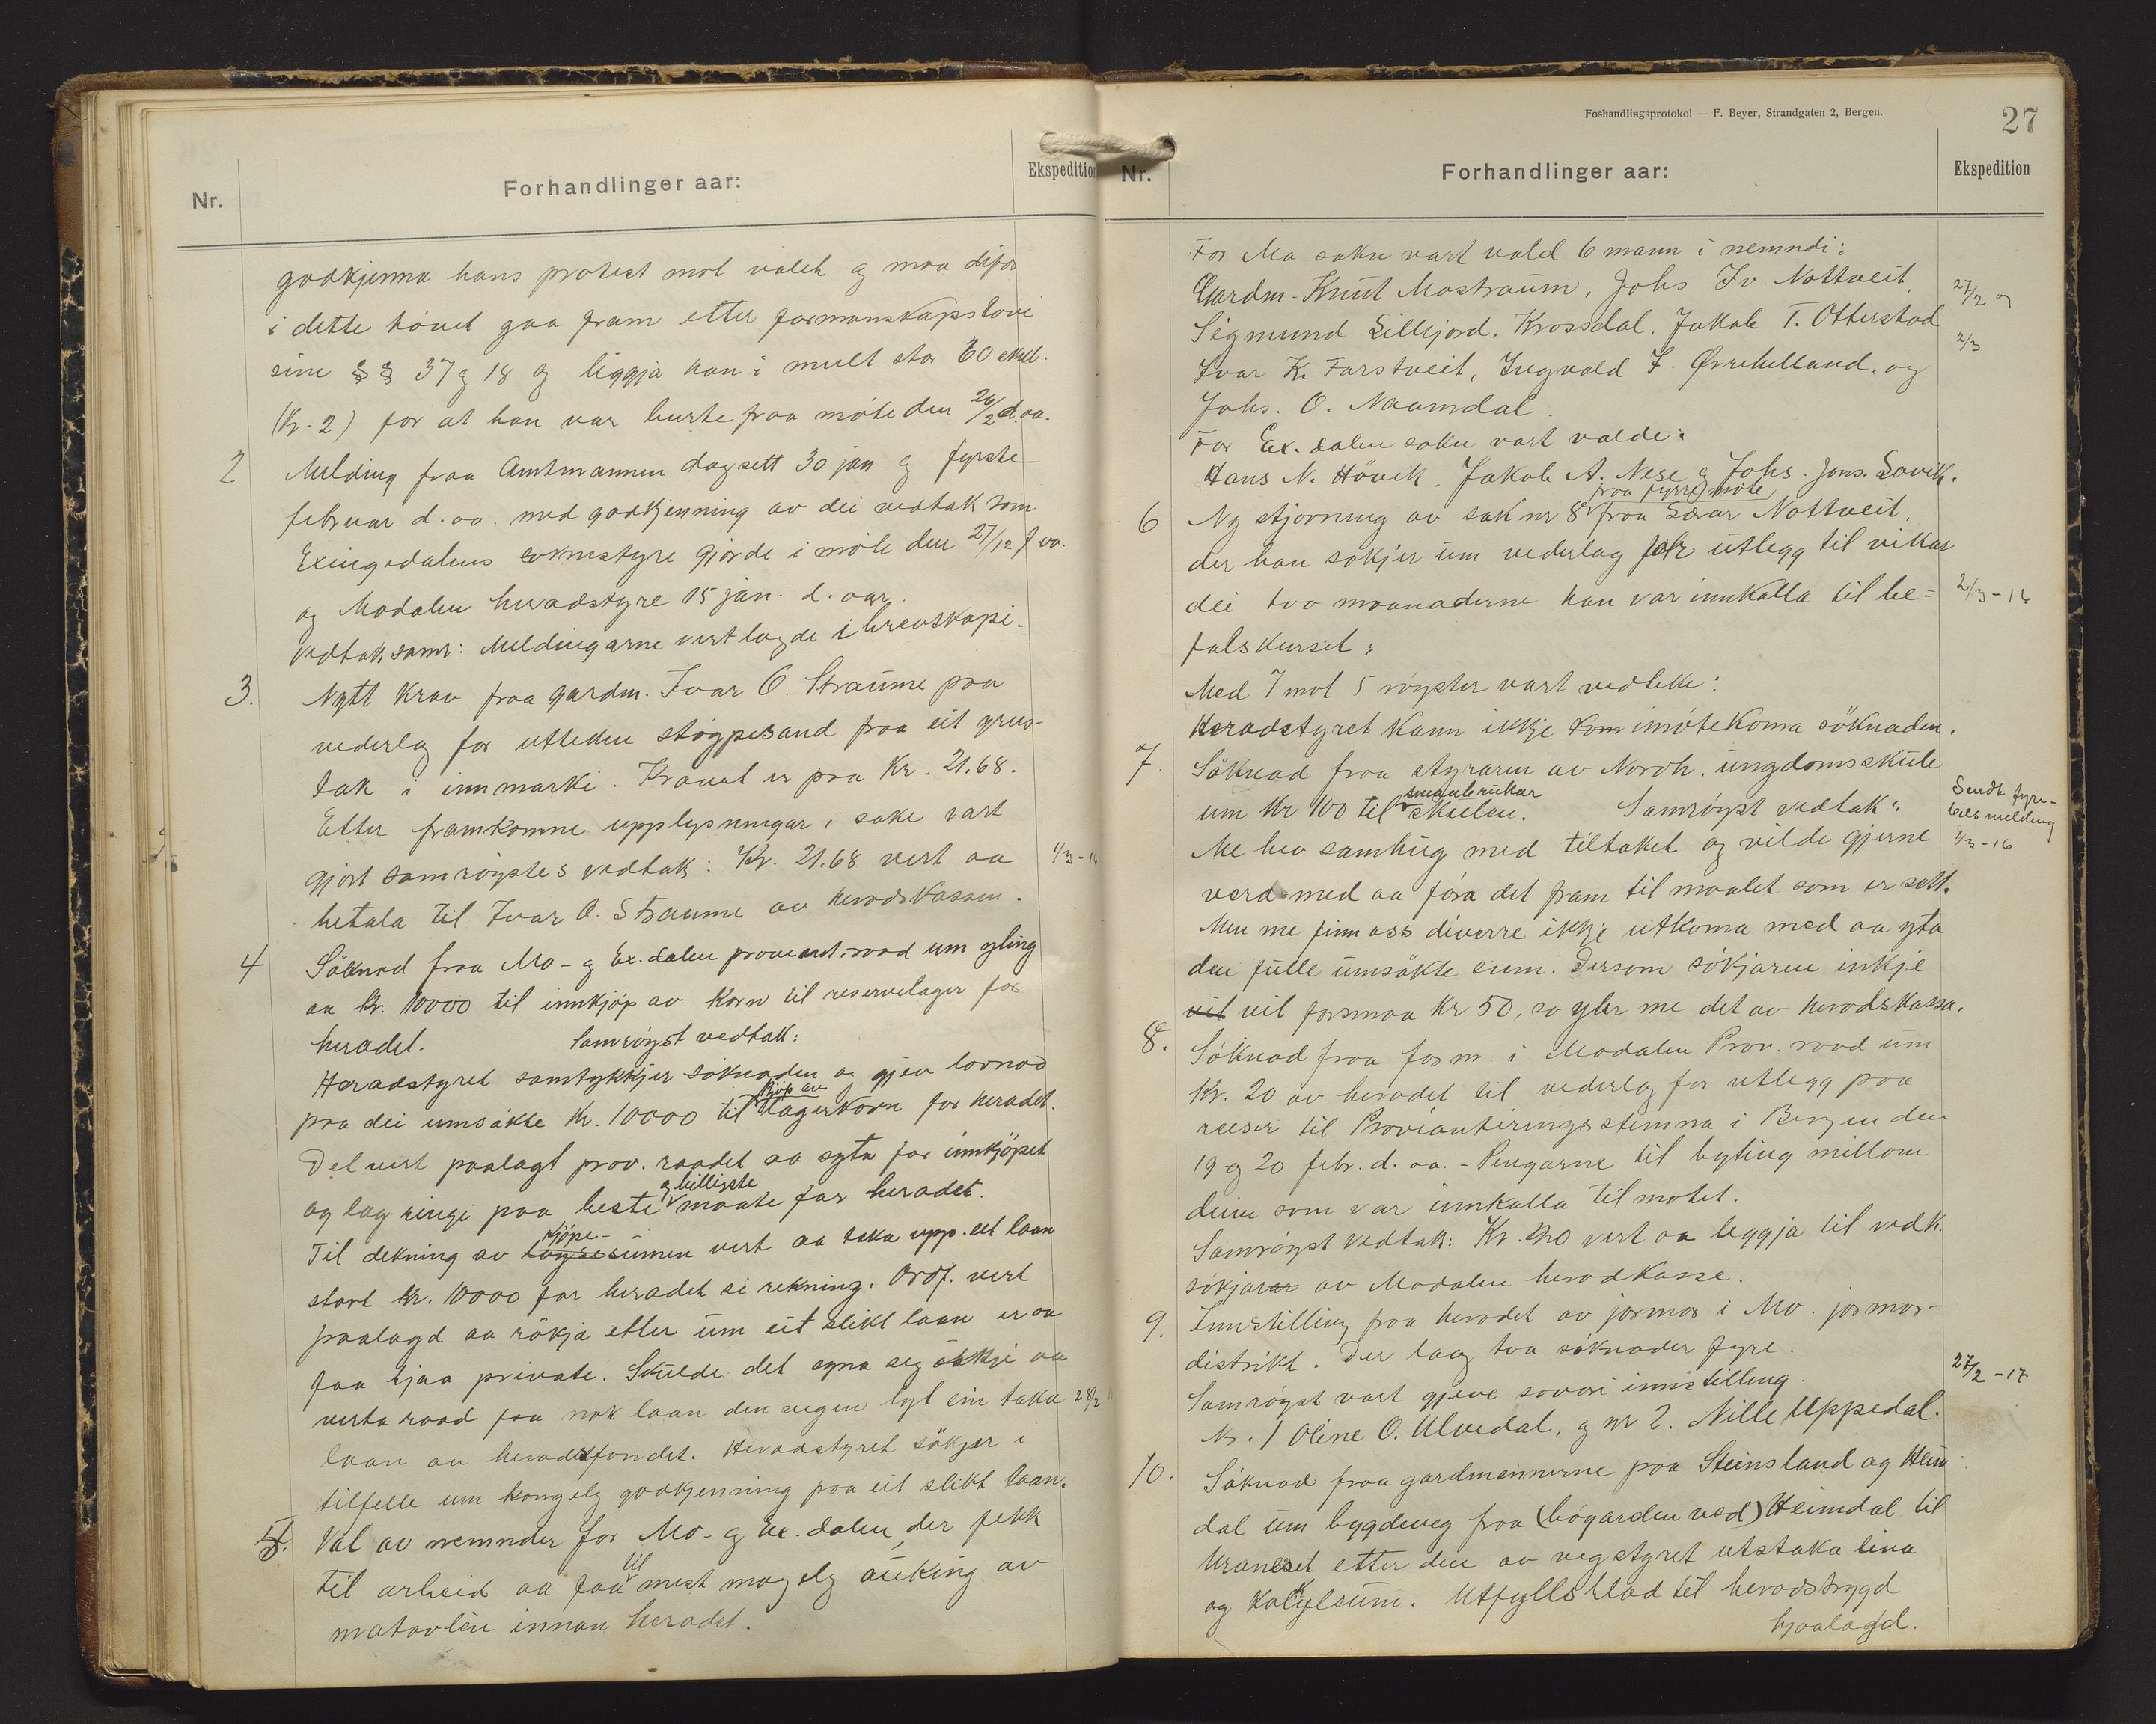 Nr.
Forhandlinger aar:
Ekspedition
godkjenna hans protest mot valet og maa difor
i dette høvet gaa fram etter formanskapslovi
sine §§ 37 og 18 og liggja han i mult stor 60 skill.
(Kr. 2) for at han var burte fraa møte den 26/2 d. aa.
2 Melding fraa Amtmannen dagsett 30 jan og fyrste
februar d. aa. med godkjenning av dei vedtak som
Exingedalens soknstyre gjorde i møte den 27/12 f. aa.
og Modalen heradstyre 15 jan. d. aar.
Vedtak samr: Meldingarne vert lagde i brevskapi.
3. Nytt krav fraa gardm. Ivar O. Straume paa
vederlag for utteken støypesand fraa eit grus-
tak i innmarki. Kravet er paa Kr. 21.68.
Etter framkomne upplysningar i sake vart
gjort samrøystes vedtak: Kr. 21.68 vert aa 1/3-16
betala til Ivar O. Straume av heradskassen.
4 Søknad fraa Mo- og Ex.dalen proviant.raad um yting
aa kr. 10000 til innkjøp av korn til reservelager for
heradet. Samrøyst vedtak:
Heradstyret samtykkjer søknaden og gjev lovnad
paa dei umsøkte Kr. 10000 til kjøp av lagerkorn for heradet.
Det vert paalagt prov. raadet aa syta for innkjøpet
og lagringi paa beste og billigste maate for heradet.
Til dekning av kjøpesumen vert aa taka upp. eit laan
stort kr. 10000 for heradet si rekning. Ordf. vert
paalagd aa røkja etter um eit slikt laan er aa
faa hjaa private. Skulde det syna seg ikkje aa
verta raad faa nok laan den vegen lyt ein taka 28/2
laan av heradsfondet. Heradstyret søkjer i
tilfelle um kongelg godkjenning paa eit slikt laan.
5. Val av nemnder for Mo- og Ex.-dalen, der fekk
til arbeid aa faa til mest mogelg auking av
matavlen innan heradet.
Foshandlingsprotokol — F. Beyer, Strandgaten 2, Bergen.
27
Nr.
Forhandlinger aar:
Ekspedition
For Mo sokn vart vald 6 mann i nemndi:
Gardm. Knut Mostraum, Johs Iv. Nottveit, 27/2 og
Sigmund Lillejord, Krossdal, Jakob T. Otterstad 2/3
Ivar K. Farstveit, Ingvald I. Øvrehelland, og
Johs. O. Naamdal.
For Ex.dalen sokn vart valde:
Hans N. Høvik, Jakob A. Nese og Johs. Jons. Lavik.
6 Ny stjorning av sak nr 8 fraa fyrre møte fraa Nottveit,
der han søkjer um vederlag for utlegg til vikar
dei tvo maanaderne han var innkalla til be= 2/3-16
falskurset:
Med 7 mot 5 røyster vart vedteke:
Heradstyret kann ikkje kom imøtekoma søknaden.
7 Søknad fraa styraren av Nordh. ungdomsskule
um Kr 100 til smaabrukar skulen. Samrøyst vedtak: Sendt fyre-
bils melding
Me hev samhug med tiltaket og vilde gjerne 1/3-16
vera med aa føra det fram til maalet som er sett.
Men me finn oss diverre ikkje utkoma med aa yta
den fulle umsøkte sum. Dersom søkjaren inkje
vil vil forsmaa kr 50, so yter me det av heradskassa.
8. Søknad fraa form. i Modalen Prov. raad um
Kr. 20 av heradet til vederlag for utlegg paa
reiser til Provianteringsstemna i Bergen den
19 og 20 febr. d. aa. - Pengarne til byting millom
deim som var innkalla til motet.
Samrøyst vedtak: Kr. 20 vert aa leggja til vedk.
søkjarar av Modalen heradkasse.
9. Innstilling fraa heradet av jormor i Mo. jormor-
distrikt. Der laag tva søknader fyre.
Samrøyst vart gjeve sovori innstilling. 27/2-17
Nr. 1 Oline O. Ulvedal, og nr 2. Nille Uppedal.
10. Søknad fraa gardmennerne paa Steinsland og Heim-
dal um bygdeveg fraa (bøgarden ved) Heimdal til
etter den av vegstyret utstaka lina
og kalkylsum. Utfyllsblad til heradstrygd
hjaalagd.